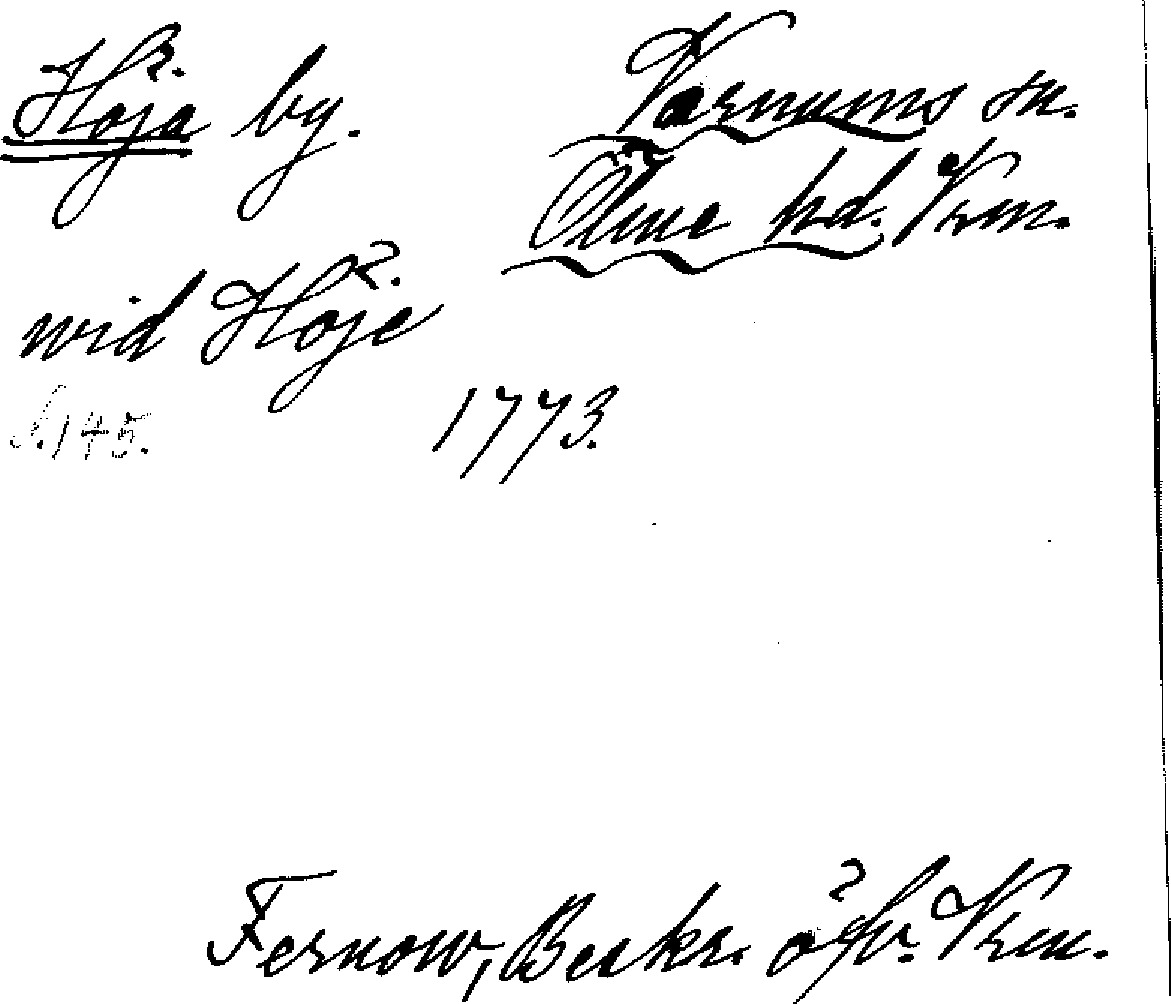 Höja by. Varnums sn.
Ölme hd. Vrm.
wid Höje
S. 145. 1773.
Fernow, Beskr. öfv. Vrm.